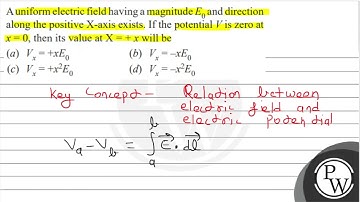 A uniform electric field having a magnitude E₀ and direction
along the positive X-axis exists. If the potential V is zero at
x = 0, then its value at X = + x will be
(a) Vₓ = +xE₀ (b) Vₓ = –xE₀
(c) Vₓ = +x²E₀ (d) Vₓ = –x²E₀
Key Concept - Relation between
electric field and
electric potential
Vₐ - V_b = ∫ₐᵇ E⃗ . dl⃗
PW